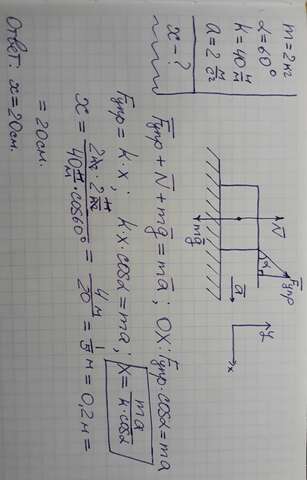 m = 2кг
α = 60°
k = 40 Н/м
a = 2 м/с²
x - ?
N
Fупр
α
a
mg
y
x
Fупр + N + mg = ma; OX: Fупр·cosα = ma
Fупр = k·x; k·x·cosα = ma; x = ma/(k·cosα)
x = 2кг · 2 м/с² / (40 Н/м · cos60°) = 4/20 м = 1/5 м = 0,2м =
= 20см.
Ответ: x = 20см.